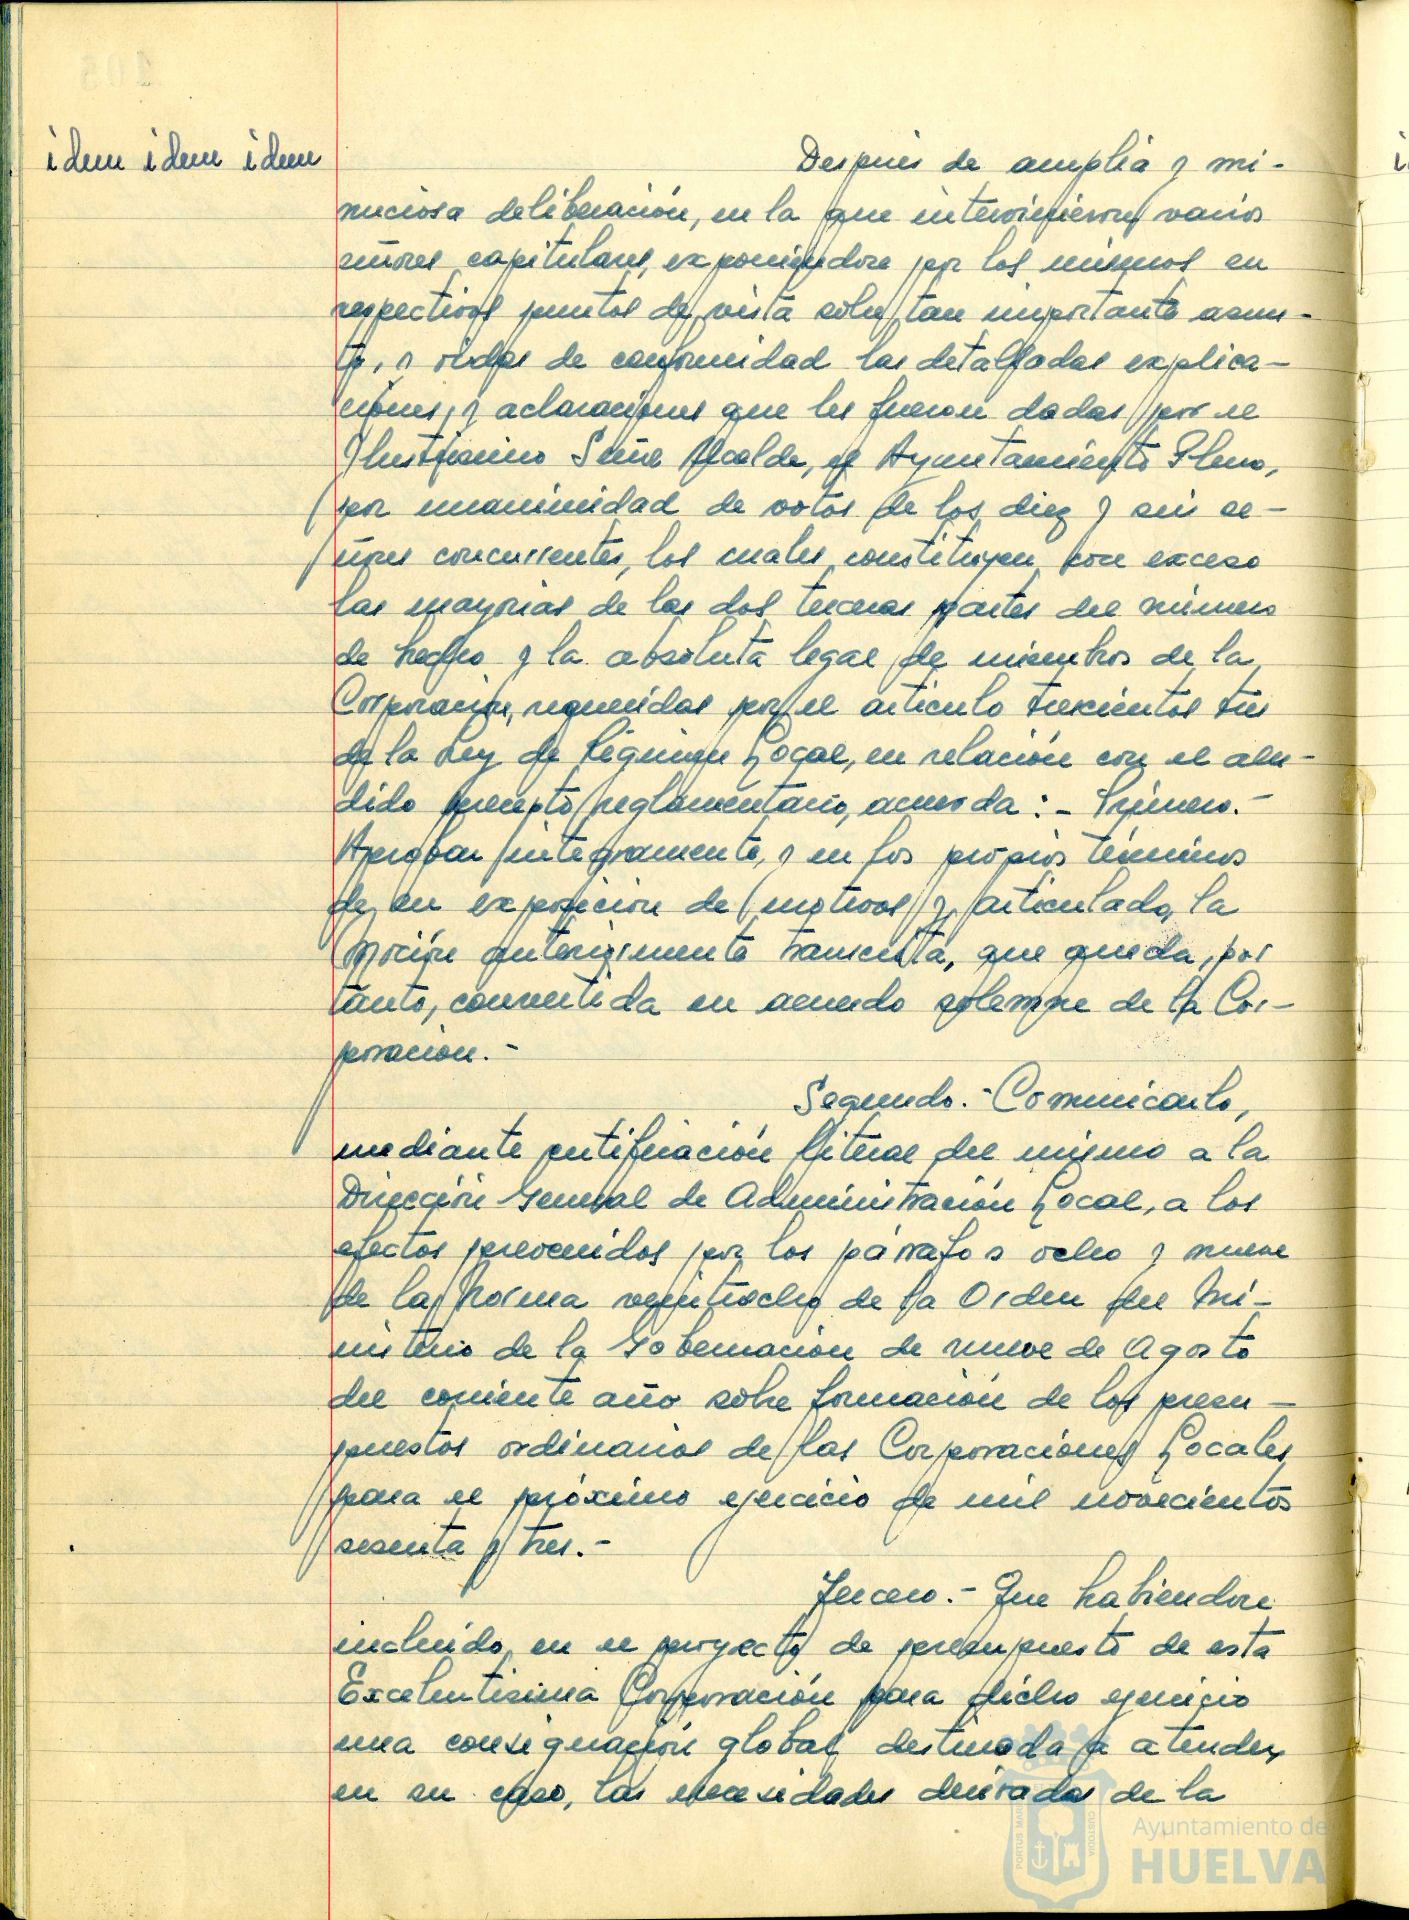 idem idem idem
Después de amplia y mi-
nuciosa deliberación, en la que intervinieron varios
señores capitulares, exponiéndose por los mismos su
respectivos puntos de vista sobre tan importante asun-
to, y oidas de conformidad las detalladas explica-
ciones, y aclaraciones que les fueron dadas por el
Ilustrisimo Señor Alcalde, el Ayuntamiento Pleno,
por unanimidad de votos de los diez y seis se-
ñores concurrentes, los cuales constituyen con exceso
las mayorias de las dos terceras partes del número
de hecho y la absoluta legal de miembros de la
Corporación, requeridas por el articulo trescientos tres
de la Ley de Régimen Local, en relación con el alu-
dido precepto reglamentario, acuerda:- Primero.-
Aprobar integramente, y en los propios términos
de su exposicion de motivos y articulado, la
Moción anteriormente transcrita, que queda, por
tanto, convertida en acuerdo solemne de la Cor-
poracion.-
Segundo.- Comunicarlo,
mediante certificación literal del mismo a la
Dirección General de Administración Local, a los
efectos prevenidos por los párrafos ocho y nueve
de la Norma veintiocho de la Orden del Mi-
nisterio de la Gobernación de nueve de Agosto
del corriente año sobre formación de los presu-
puestos ordinarios de las Corporaciones Locales
para el próximo ejercicio de mil novecientos
sesenta y tres.-
Tercero.- Que habiendose
incluido en el proyecto de presupuesto de esta
Excelentisima Corporación para dicho ejercicio
una consignación global destinada a atender,
en su caso, las necesidades derivadas de la
Ayuntamiento de
HUELVA